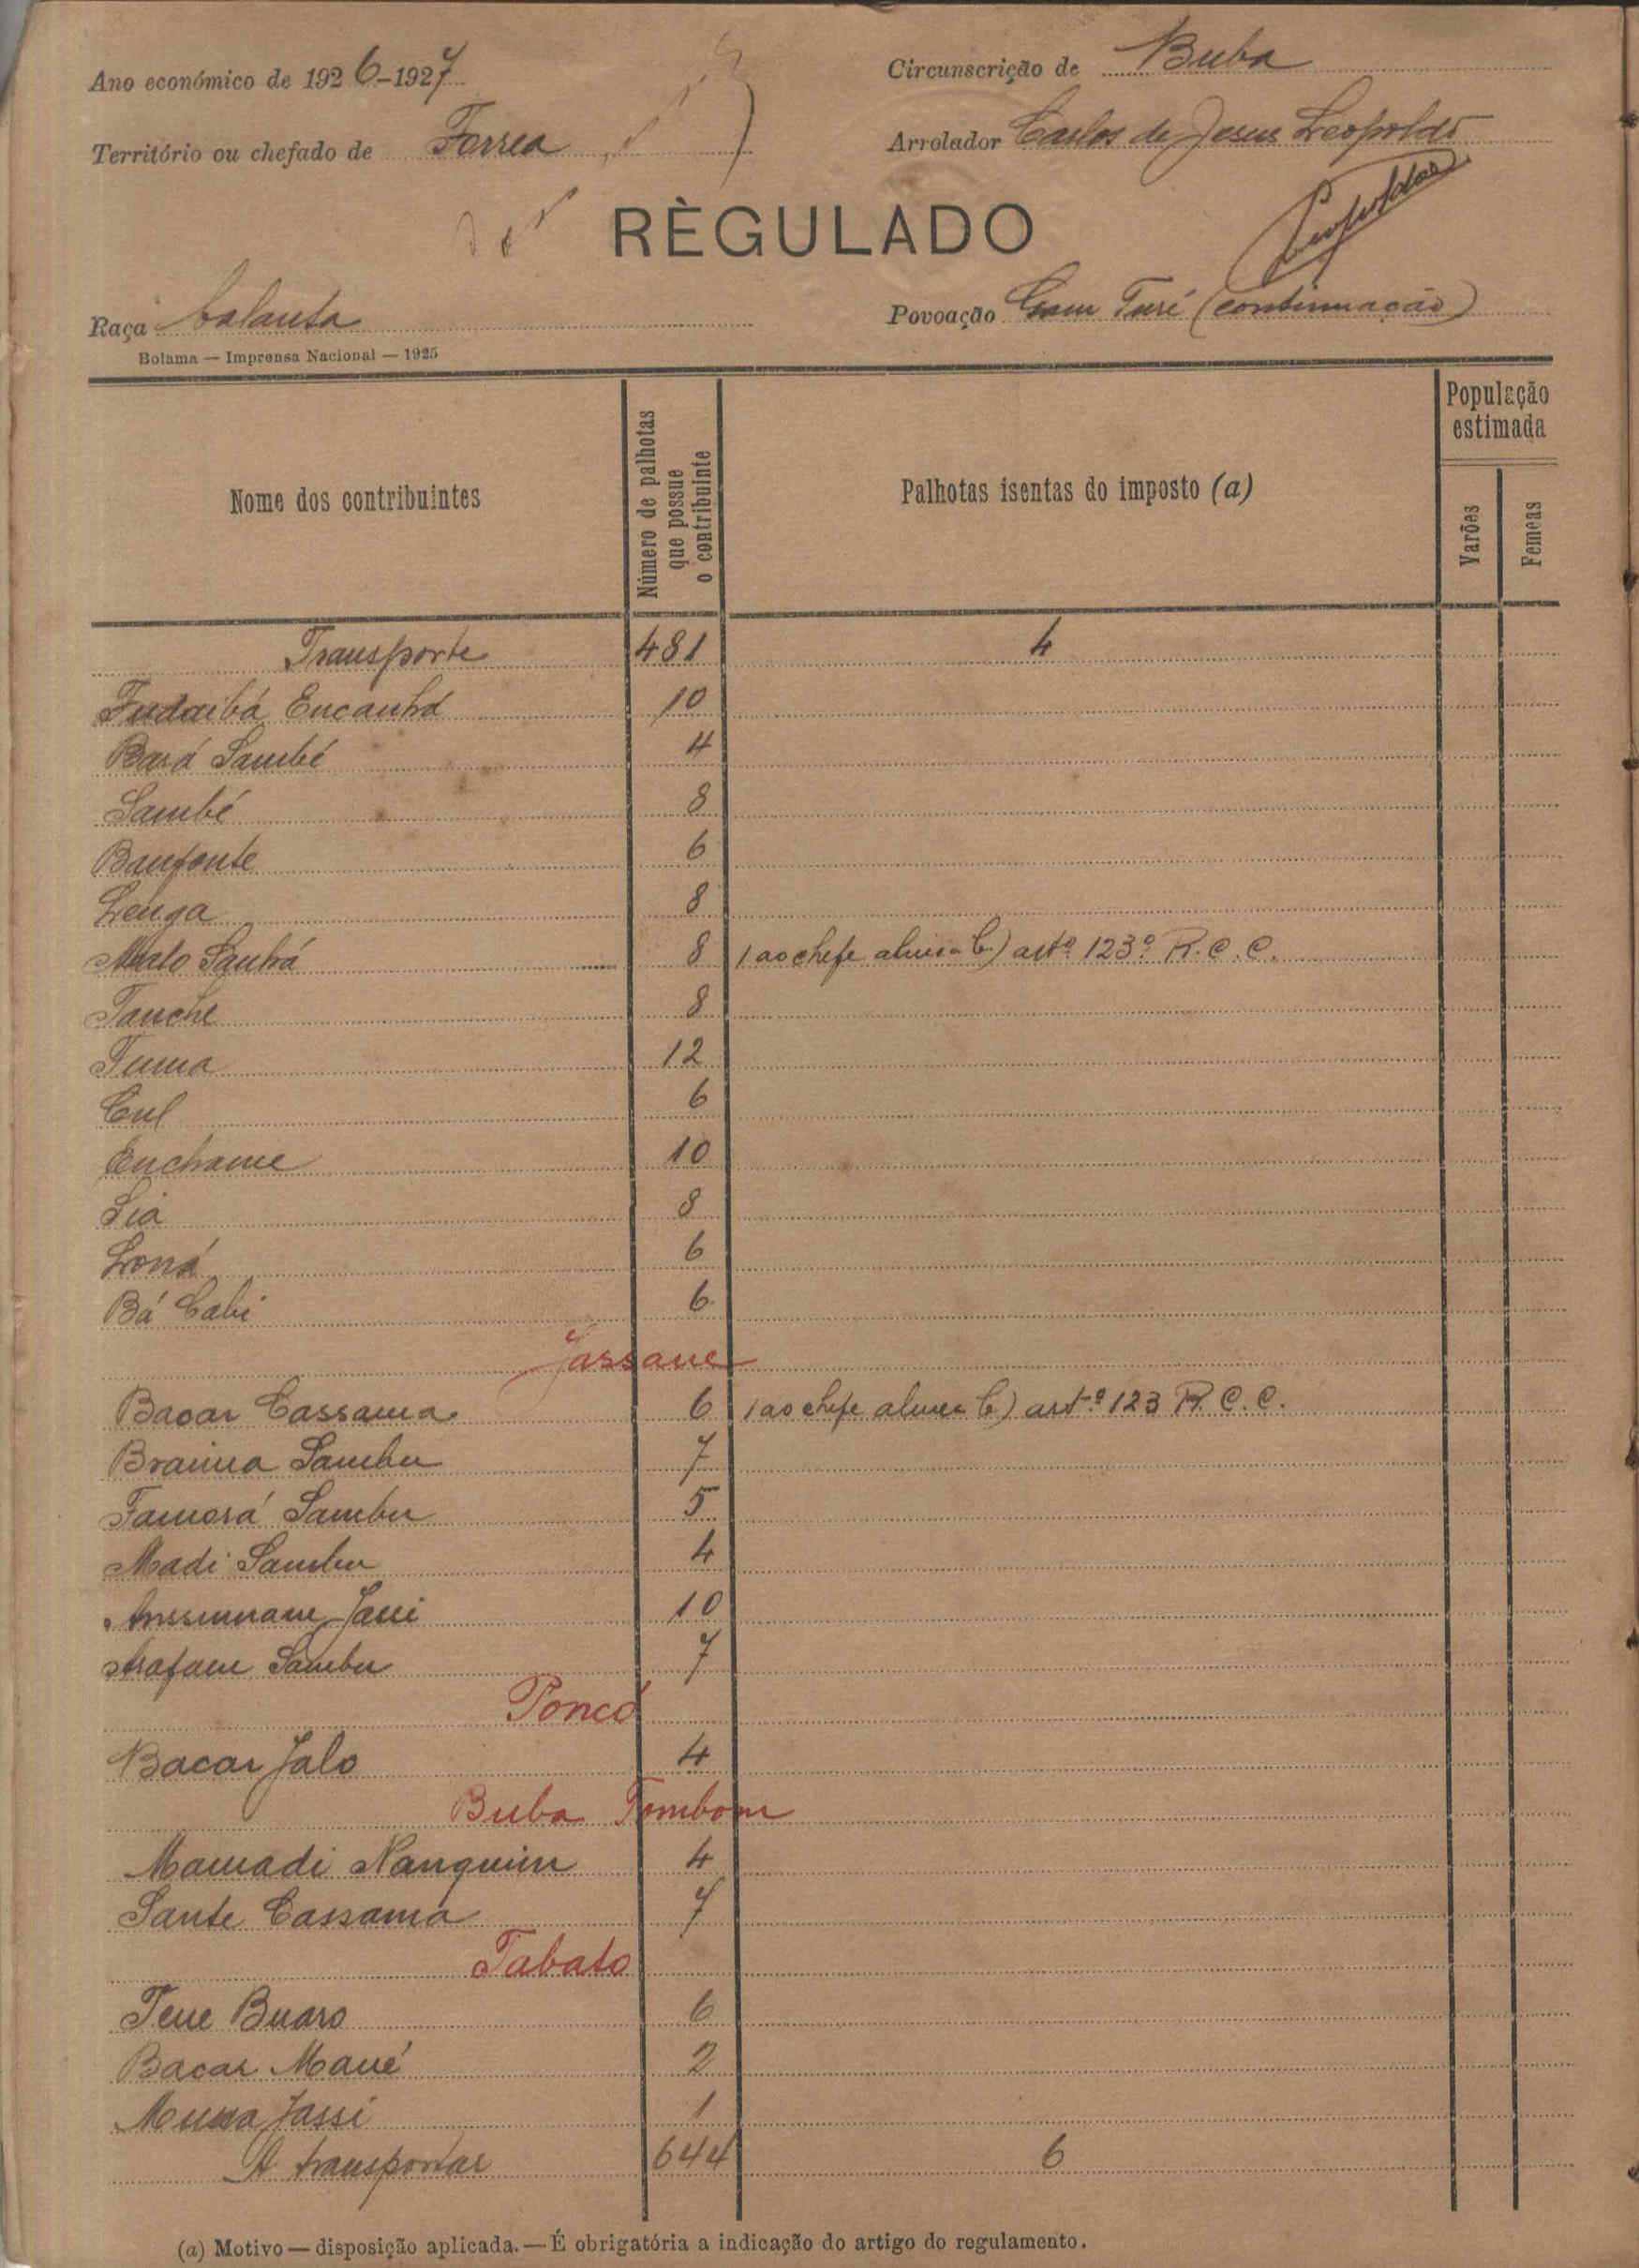 Ano económico de 1926-1927
Circunscrição de Buba
Território ou chefado de Forrea
Arrolador Carlos de Jesus Leopoldo
RÈGULADO
Raça balanta
Povoação Gam Turé (continuação)
Bolama — Imprensa Nacional — 1925
Nome dos contribuintes
Número de palhotas que possue o contribuinte
Palhotas isentas do imposto (a)
População estimada
Varões
Femeas
Transporte 481 4
Fudaibá Encanhá 10
Bará Sambé 4
Sambé 8
Banfonte 6
Lenga 8
Sanhá 8 1 ao chefe alinea b) artº 123º R.C.C.
Tanche 8
Tuma 12
Cul 6
Enchame 10
Sia 8
Loná 6
Bá Cabi 6
Jassane
Bacar Cassama 6 1 ao chefe alinea b) artº 123 R.C.C.
Braima Sambu 7
Famorá Sambu 5
Madi Sambu 4
Anssumane Jassi 10
Arafam Sambu 7
Poncó
Bacar Jalo 4
Buba Tombom
Mamadi Nanquim 4
Sante Cassamá 7
Tabato
Tene Buaro 6
Bacar Mané 2
Mussa Jassi 1
A transportar 644 6
(a) Motivo — disposição aplicada. — É obrigatória a indicação do artigo do regulamento.